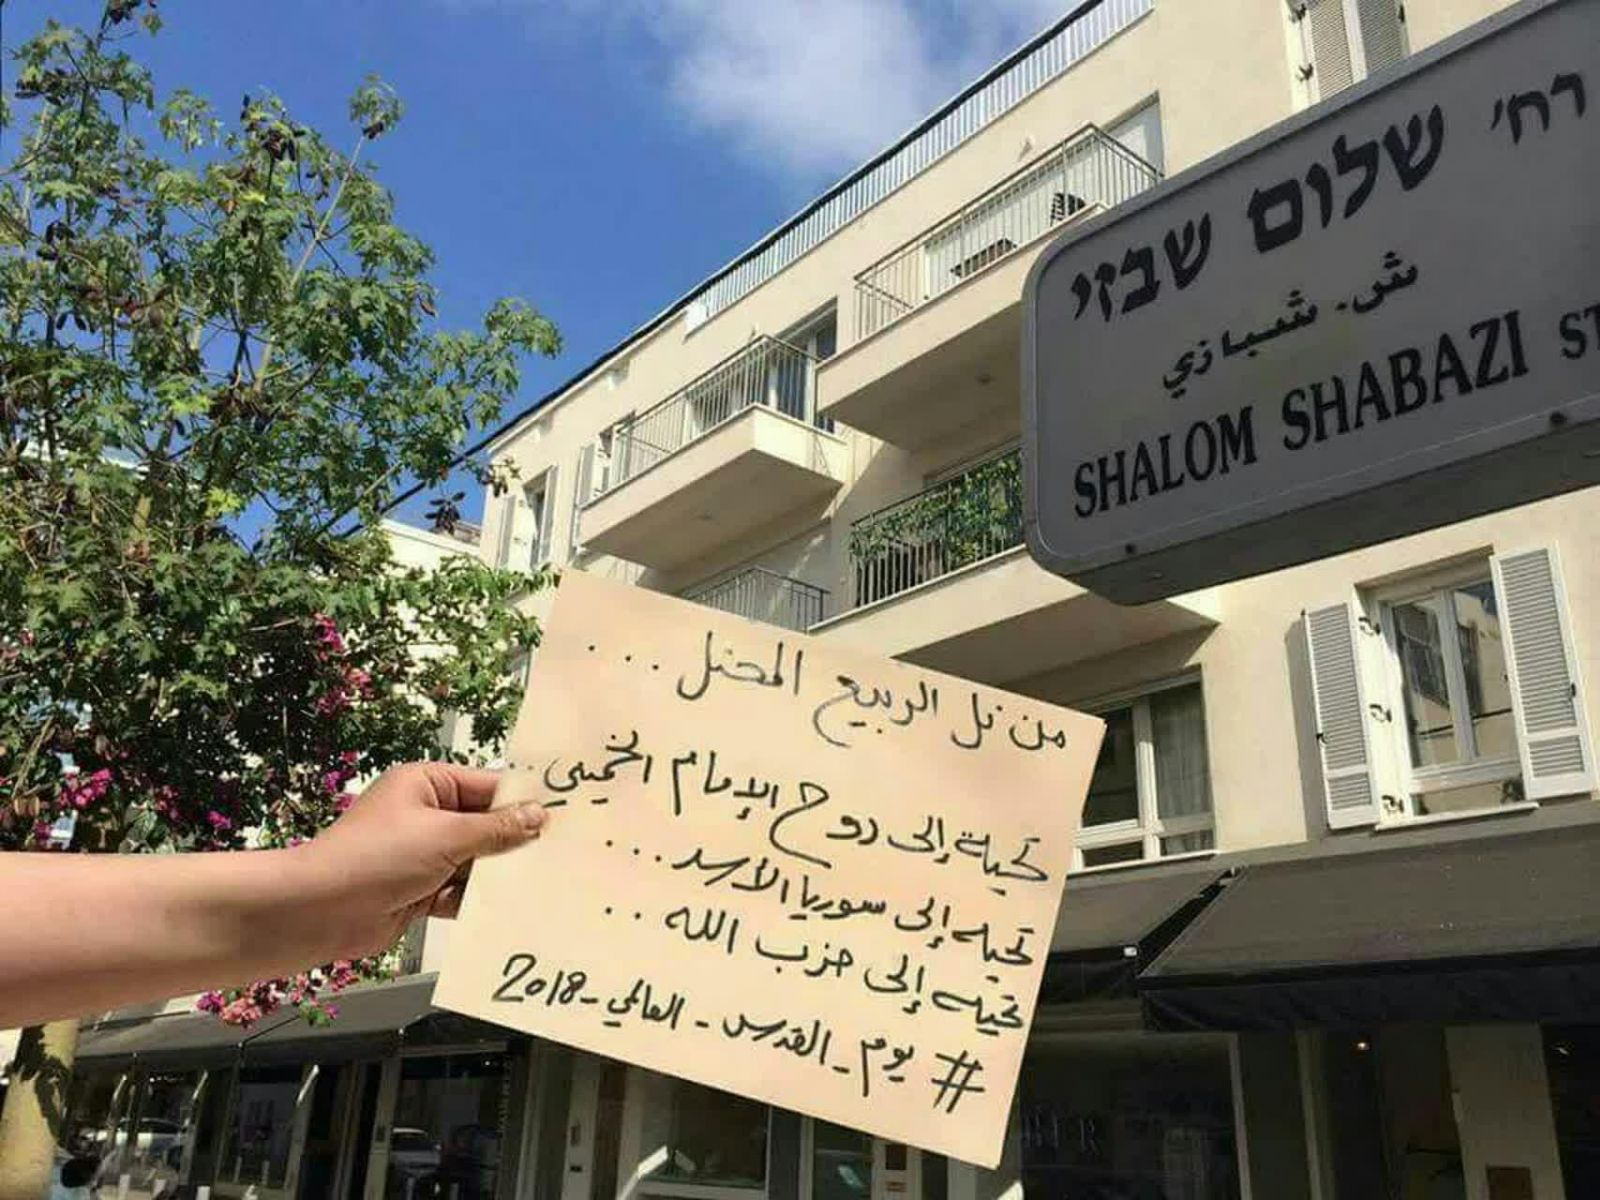 רח' שלום שבזי
ش. شبازي
SHALOM SHABAZI ST
من تل الربيع المحتل...
تحية إلى روح الإمام الخميني..
تحيه إلى سوريا الأسد...
تحيه إلى حزب الله..
#يوم_القدس_العالمي_2018